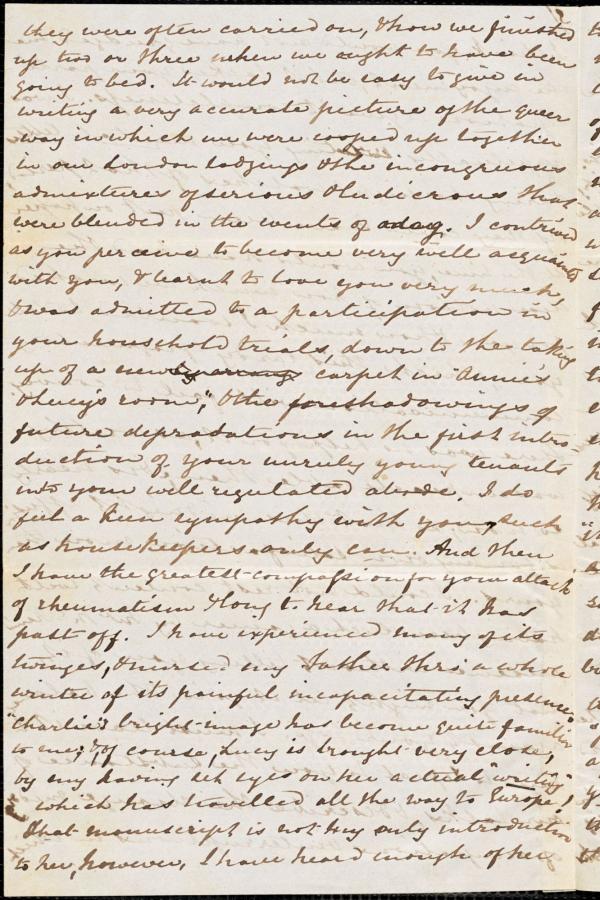 they were often carried on, & how we finished
up two or three when we ought to have been
going to bed. It would not be easy to give in
writing a very accurate picture of the queer
way in which we were cooped up together
in our London lodgings & the incongruous
admixtures of serious & ludicrous that
were blended in the events of a day. I contrived
as you perceive to become very well acquainted
with you, & learnt to love you very much,
& was admitted to a participation in
your household trials, down to the taking
up of a new carpet in "Annie's
& Lucy's room", & the foreshadowings of
future depradations in the first intro-
duction of your unruly young tenants
into your well regulated abode. I do
feel a keen sympathy with you, such
as housekeepers only can. And then
I have the greatest compassion for your attack
of rheumatism & long to hear that it has
past off. I have experienced many of its
twinges, & nursed my Father thro' a whole
winter of its painful incapacitating presence.
"Charlie's bright image has become quite familiar
to me; & of course, Lucy is brought very close,
by my having set eyes on her actual "writing"
which has travelled all the way to Europe!
That manuscript is not my only introduction
to her, however, I have heard enough of her